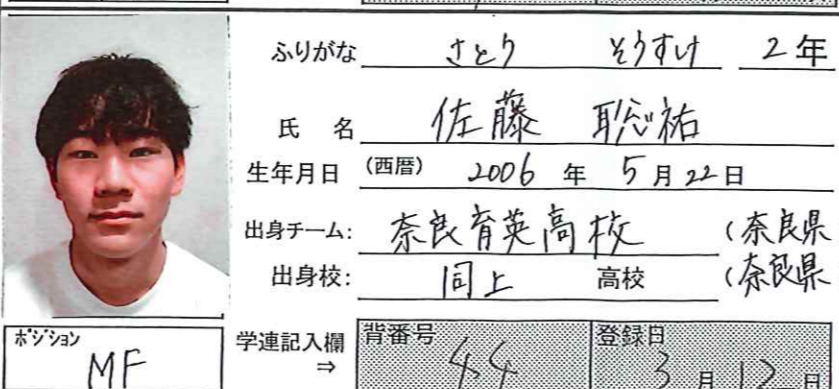 ふりがな さとう そうすけ 2年
氏 名 佐藤 聡祐
生年月日 (西暦) 2006 年 5 月 22 日
出身チーム: 奈良育英高校 (奈良県
出身校: 同上 高校 (奈良県
ポジション
MF
学連記入欄 ⇒
背番号 44
登録日 3 月 12 日